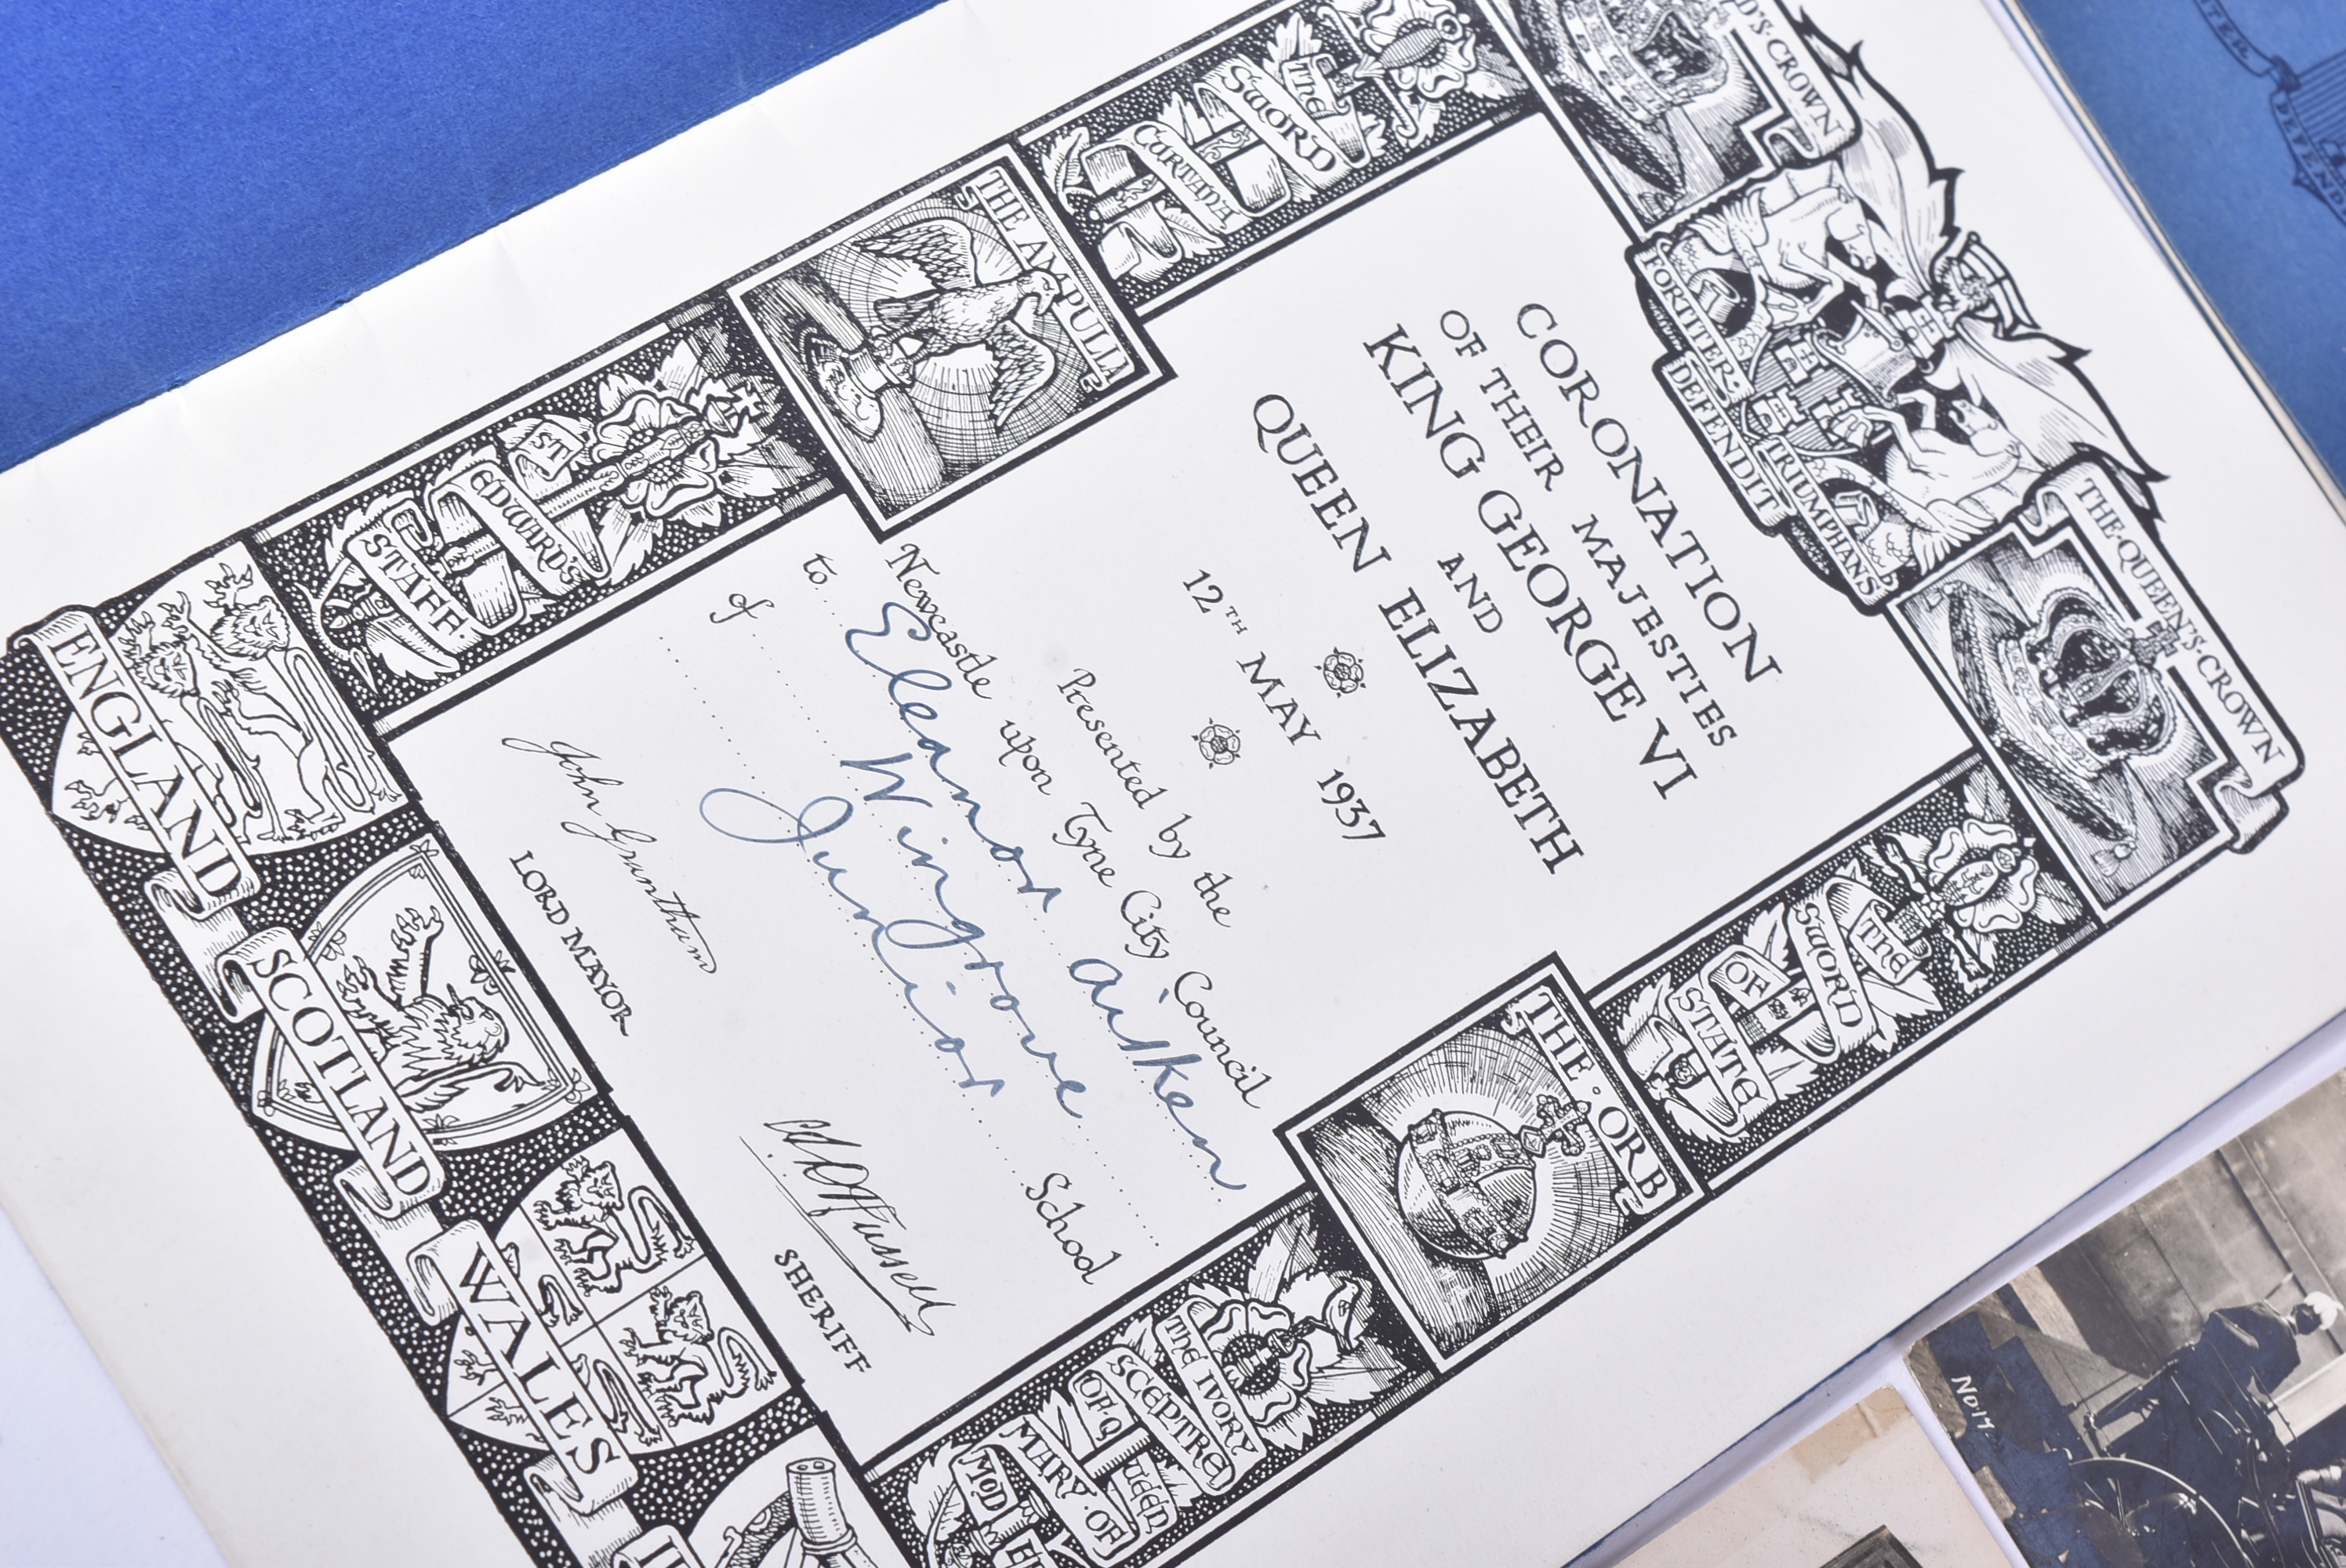 D'S·CROWN
FORTITER·
DEFENDIT
TRIUMPHANS
THE·QUEEN'S·CROWN
THE
SWORD
CURTANA
THE AMPULLA
ST
EDWARD'S
STAFF·
CORONATION
OF THEIR MAJESTIES
KING GEORGE VI
AND
QUEEN ELIZABETH
12TH MAY 1937
Presented by the
Newcastle upon Tyne City Council
to Eleanor Aitken
of Wingrove
Junior School
John Grantham
LORD MAYOR
SHERIFF
THE
SWORD
OF
STATE
THE·ORB
THE IVORY
SCEPTRE
OF Q
UEEN
MARY·OF
MOD
ENGLAND
SCOTLAND
WALES
No 17